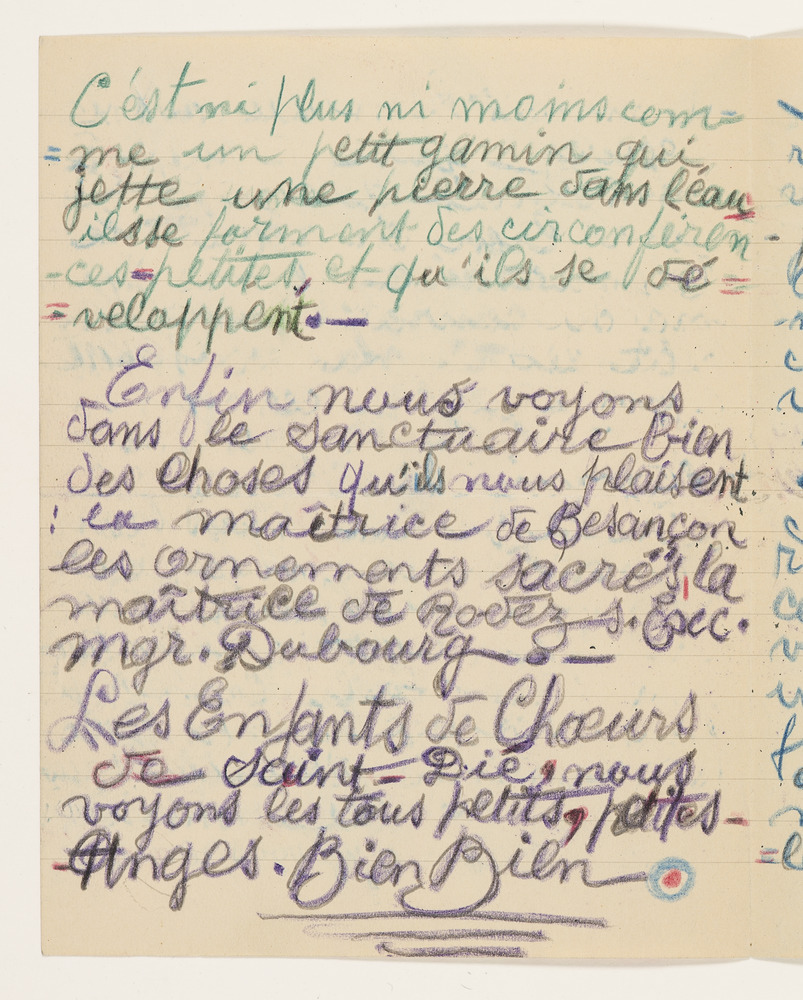 C'ést ni plus ni moins com=
=me un petit gamin qui
jette une pierre dans l'éau
ilsse forment des circonféren-
-ces petites et qu'ils se dé=
=veloppent.—
Enfin nous voyons
dans le sanctuaire bien
des choses qu'ils nous plaisent.
: la maîtrice de Besançon
les ornements sacrés, la
maîtrice de Rodez s. Exc.
mgr. Dubourg —.—
Les Enfants de Chœurs
de saint-Dié, nous
voyons les tous petits, petites-
-Anges. Bien Bien —